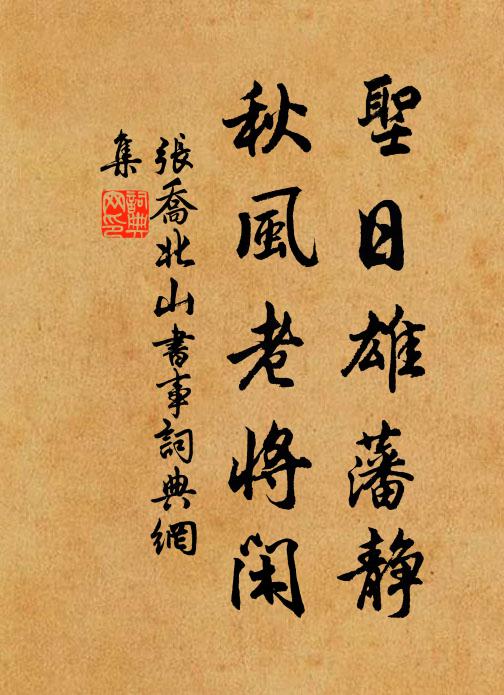 聖日雄藩静
秋風老将閑
張喬北山書事詞典網
集
詞典
网印